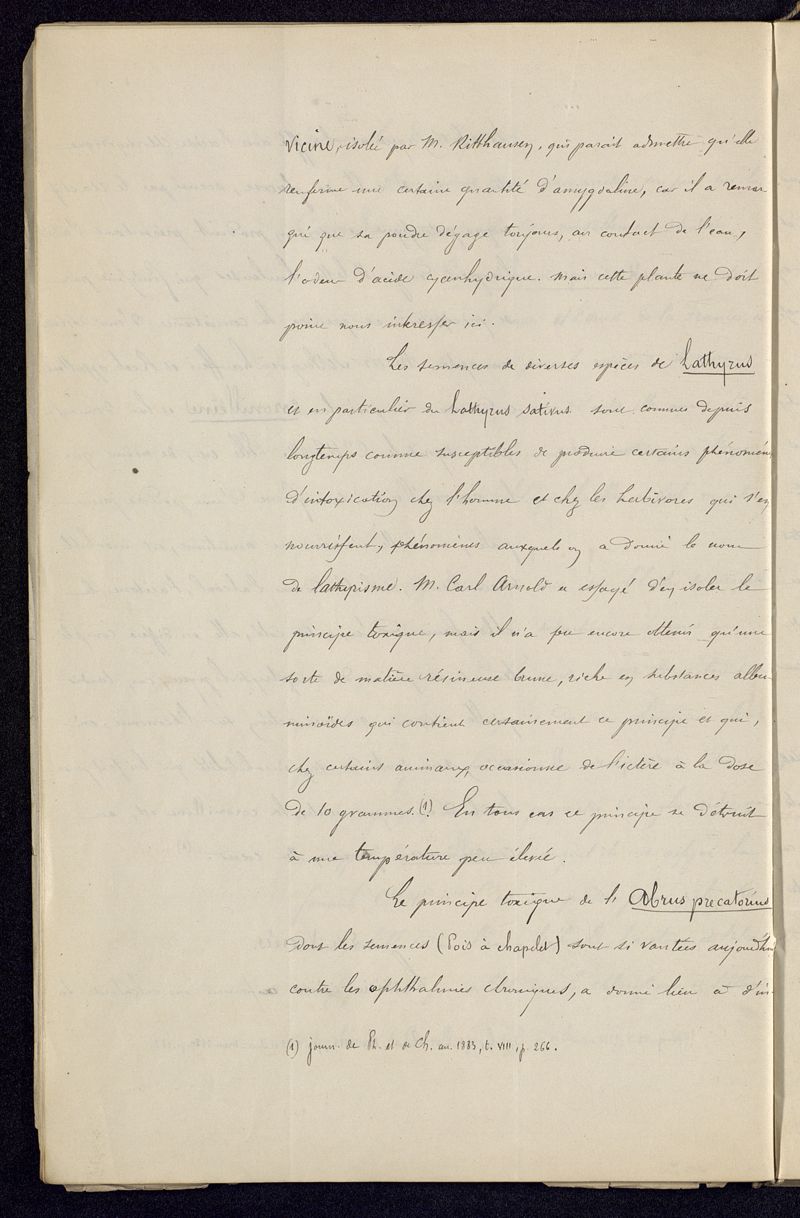 Vicine, isolée par M. Ritthausen, qui paraît admettre qu'elle
renferme une certaine quantité d'amygdaline, car il a remar
qué que sa poudre dégage toujours, au contact de l'eau,
l'odeur d'acide cyanhydrique. Mais cette plante ne doit
point nous intéresser ici.
Les semences de diverses espèces de Lathyrus
et en particulier du Lathyrus sativus sont connues depuis
longtemps comme susceptibles de produire certains phénomèn
d'intoxication chez l'homme et chez les herbivores qui s'en
nourrissent, phénomènes auxquels on a donné le nom
de lathyrisme. M. Carl Arnold a essayé d'en isoler le
principe toxique, mais il n'a pu encore obtenir qu'une
sorte de matière résineuse brune, riche en substances albu
minoïdes qui contient certainement ce principe et qui,
chez certains animaux, occasionne de l'ictère à la dose
de 10 grammes. (1) En tous cas ce principe se détruit
à une température peu élevée.
Le principe toxique de l'Abrus precatorius
dont les semences (Pois à chapelet) sont si vantées aujourd'hu
contre les ophthalmies chroniques, a donné lieu à d'in
(1) journ. de Ph. et de Ch. an. 1883, t. VIII, p. 266.